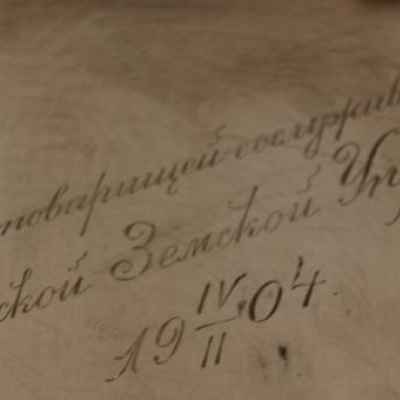 товарищей-сослужив
ской Земской Уп
19 IV/II 04.